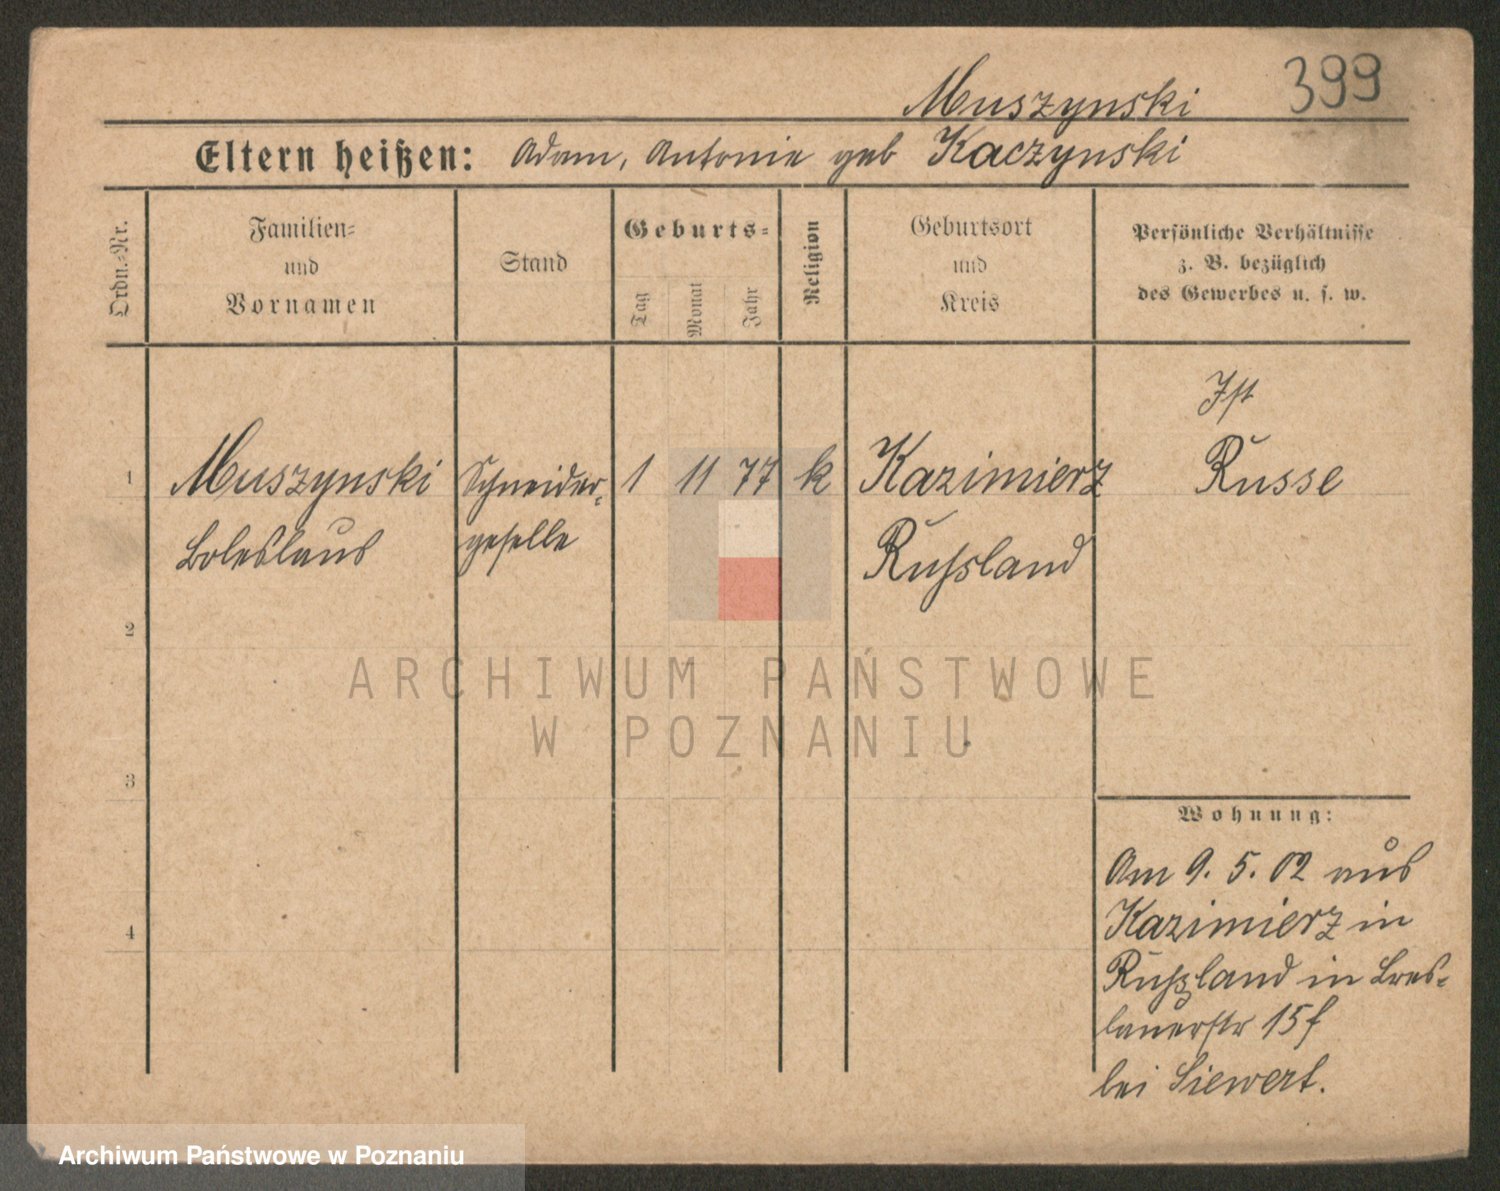 Muszynski 399
Eltern heißen: Adam, Antonie geb Kaczynski
Ordn.-Nr.
Familien-
und
Vornamen
Stand
Geburts-
Tag
Monat
Jahr
Religion
Geburtsort
und
Kreis
Persönliche Verhältnisse
z. B. bezüglich
des Gewerbes u. s. w.
Ist
1 Muszynski Schneider- 1 11 77 k Kazimierz Russe
Boleslaus geselle Russland
2
ARCHIWUM PAŃSTWOWE
W POZNANIU
3
Wohnung:
Am 9. 5. 02 aus
Kazimierz in
4
Rußland in Bres-
lauerstr 15f
bei Siewert.
Archiwum Państwowe w Poznaniu